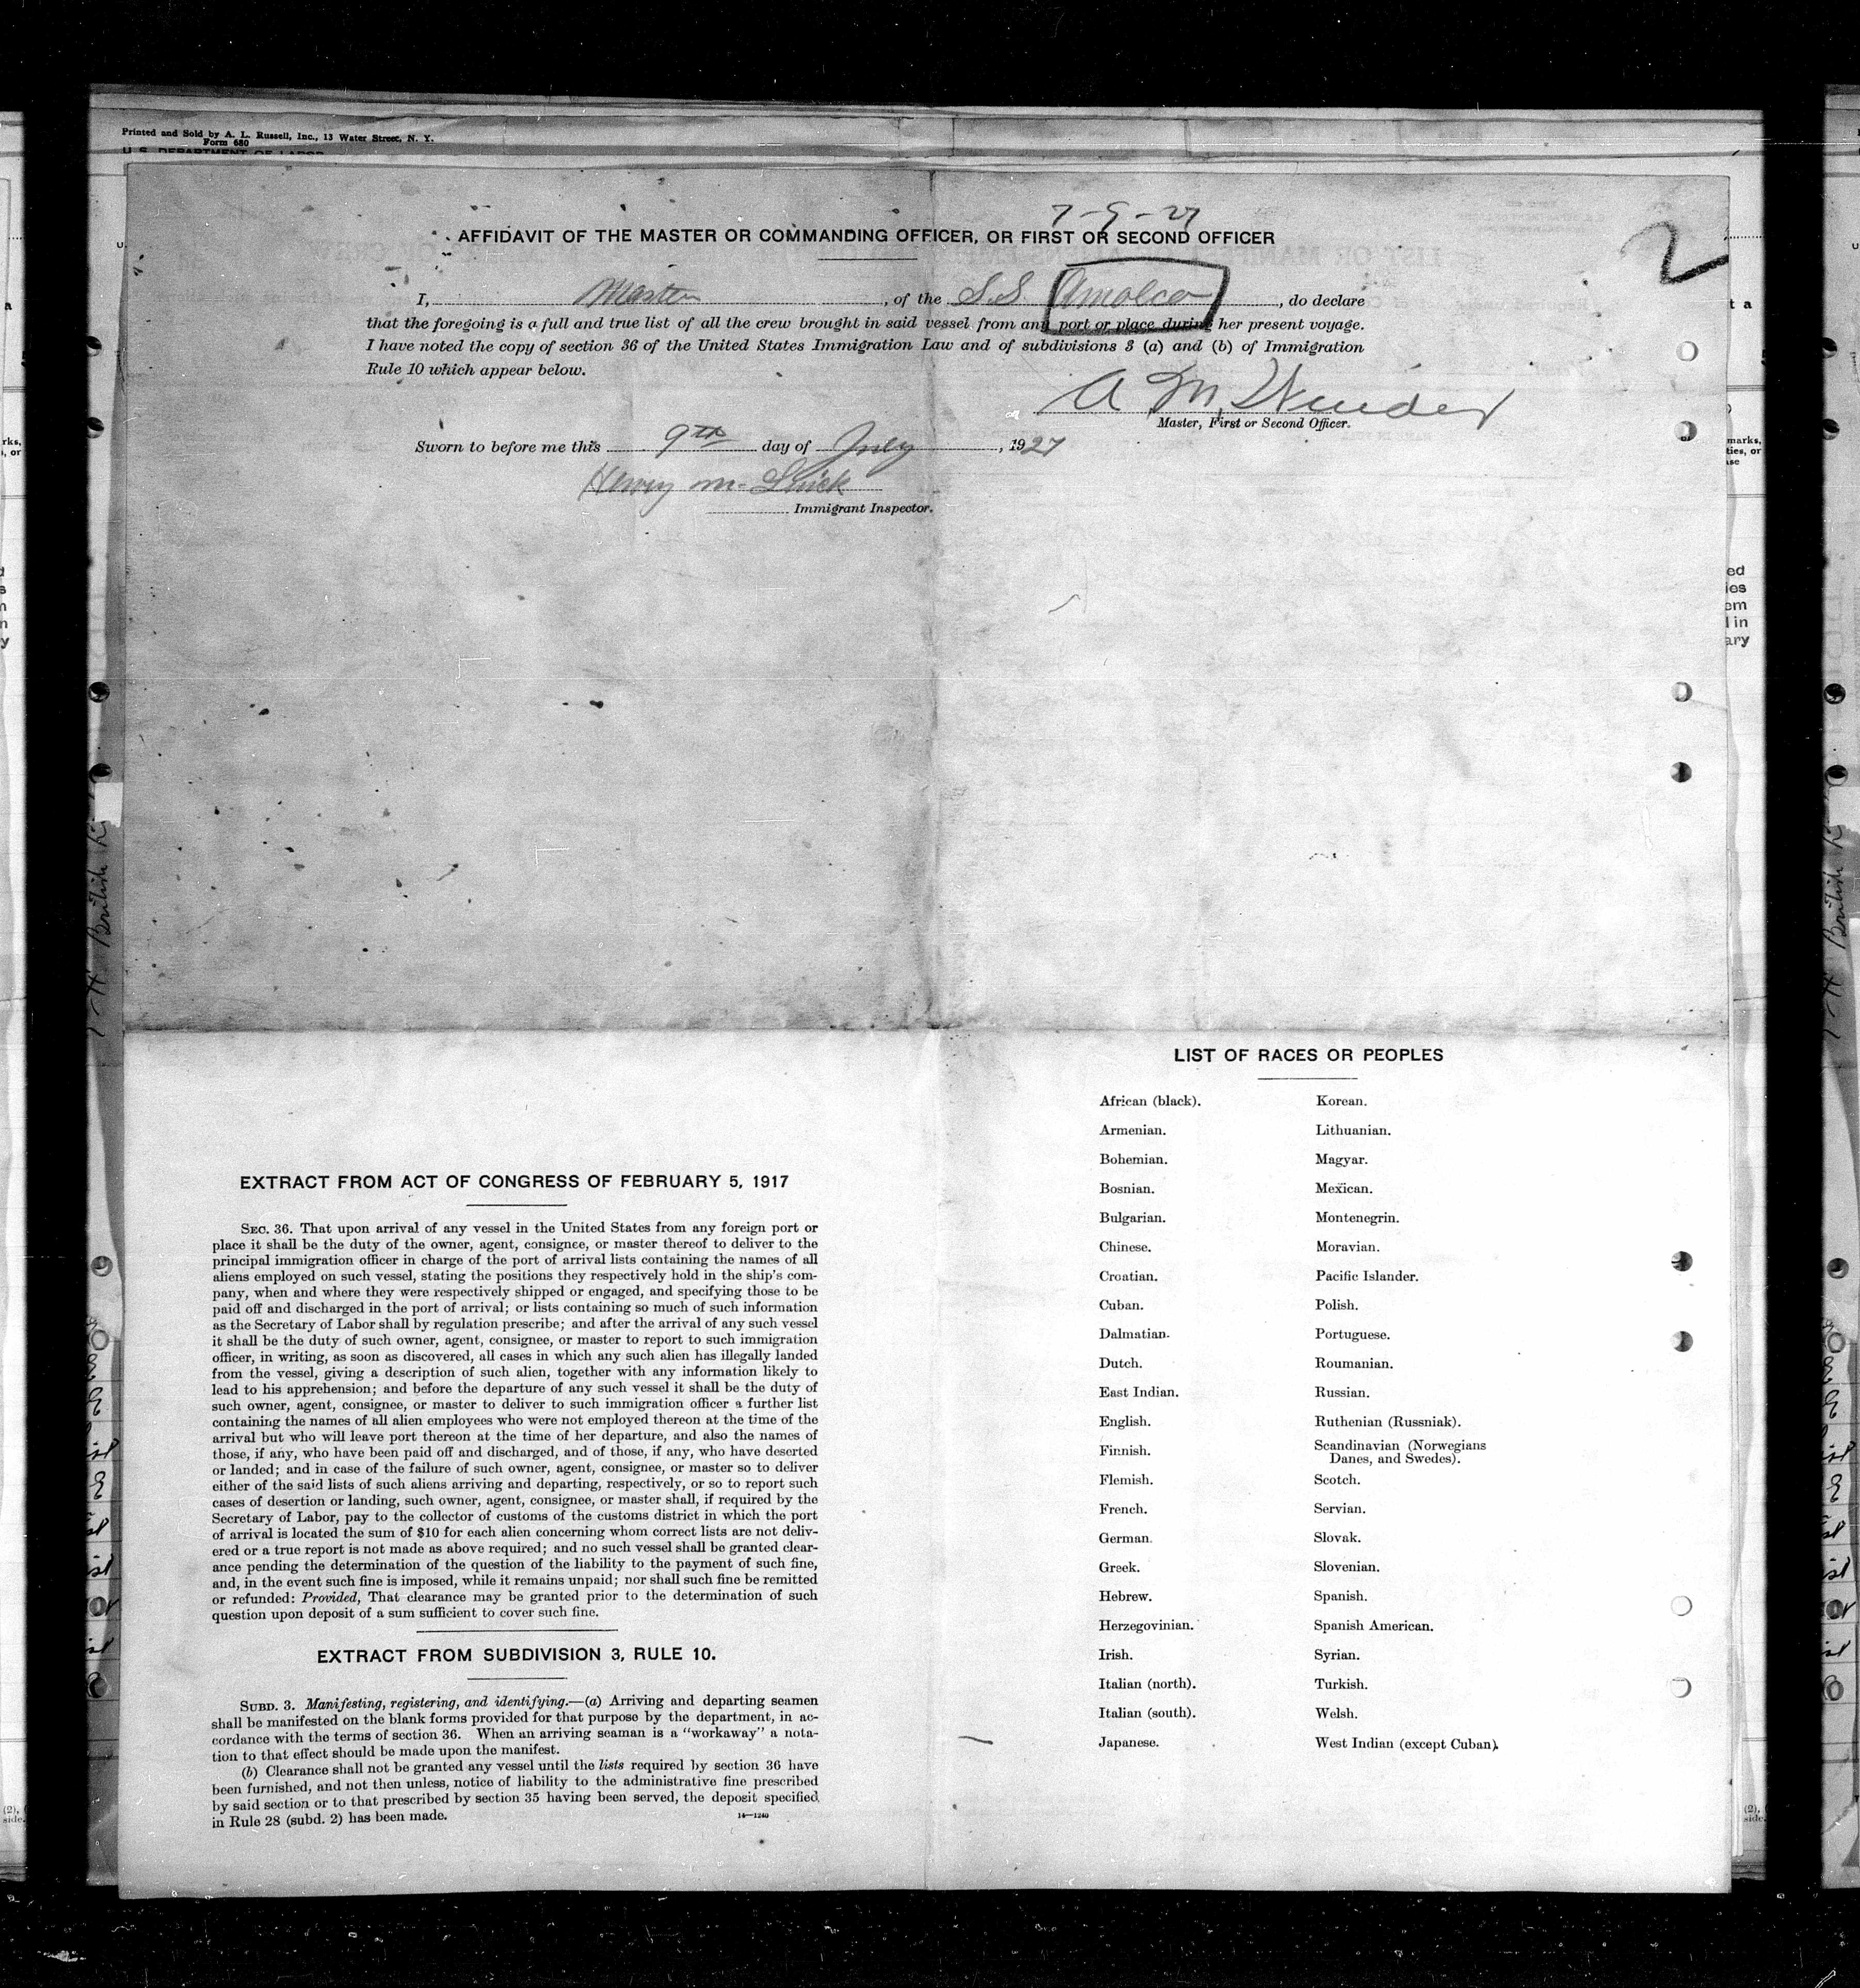 Printed and Sold by A. L. Russell, Inc., 13 Water Street, N. Y.
Form 680
U. S. DEPARTMENT OF LABOR
7-9-27
2
AFFIDAVIT OF THE MASTER OR COMMANDING OFFICER, OR FIRST OR SECOND OFFICER
I, Master, of the S.S. Amolco, do declare
that the foregoing is a full and true list of all the crew brought in said vessel from any port or place during her present voyage.
I have noted the copy of section 36 of the United States Immigration Law and of subdivisions 3 (a) and (b) of Immigration
Rule 10 which appear below.
A M
Master, First or Second Officer.
Sworn to before me this 9th day of July, 1927
Henry M.
Immigrant Inspector.
EXTRACT FROM ACT OF CONGRESS OF FEBRUARY 5, 1917
SEC. 36. That upon arrival of any vessel in the United States from any foreign port or
place it shall be the duty of the owner, agent, consignee, or master thereof to deliver to the
principal immigration officer in charge of the port of arrival lists containing the names of all
aliens employed on such vessel, stating the positions they respectively hold in the ship's com-
pany, when and where they were respectively shipped or engaged, and specifying those to be
paid off and discharged in the port of arrival; or lists containing so much of such information
as the Secretary of Labor shall by regulation prescribe; and after the arrival of any such vessel
it shall be the duty of such owner, agent, consignee, or master to report to such immigration
officer, in writing, as soon as discovered, all cases in which any such alien has illegally landed
from the vessel, giving a description of such alien, together with any information likely to
lead to his apprehension; and before the departure of any such vessel it shall be the duty of
such owner, agent, consignee, or master to deliver to such immigration officer a further list
containing the names of all alien employees who were not employed thereon at the time of the
arrival but who will leave port thereon at the time of her departure, and also the names of
those, if any, who have been paid off and discharged, and of those, if any, who have deserted
or landed; and in case of the failure of such owner, agent, consignee, or master so to deliver
either of the said lists of such aliens arriving and departing, respectively, or so to report such
cases of desertion or landing, such owner, agent, consignee, or master shall, if required by the
Secretary of Labor, pay to the collector of customs of the customs district in which the port
of arrival is located the sum of $10 for each alien concerning whom correct lists are not deliv-
ered or a true report is not made as above required; and no such vessel shall be granted clear-
ance pending the determination of the question of the liability to the payment of such fine,
and, in the event such fine is imposed, while it remains unpaid; nor shall such fine be remitted
or refunded: Provided, That clearance may be granted prior to the determination of such
question upon deposit of a sum sufficient to cover such fine.
EXTRACT FROM SUBDIVISION 3, RULE 10.
SUBD. 3. Manifesting, registering, and identifying.—(a) Arriving and departing seamen
shall be manifested on the blank forms provided for that purpose by the department, in ac-
cordance with the terms of section 36. When an arriving seaman is a "workaway" a nota-
tion to that effect should be made upon the manifest.
(b) Clearance shall not be granted any vessel until the lists required by section 36 have
been furnished, and not then unless, notice of liability to the administrative fine prescribed
by said section or to that prescribed by section 35 having been served, the deposit specified
in Rule 28 (subd. 2) has been made.
14—1240
LIST OF RACES OR PEOPLES
African (black). Korean.
Armenian. Lithuanian.
Bohemian. Magyar.
Bosnian. Mexican.
Bulgarian. Montenegrin.
Chinese. Moravian.
Croatian. Pacific Islander.
Cuban. Polish.
Dalmatian. Portuguese.
Dutch. Roumanian.
East Indian. Russian.
English. Ruthenian (Russniak).
Finnish. Scandinavian (Norwegians
Danes, and Swedes).
Flemish. Scotch.
French. Servian.
German. Slovak.
Greek. Slovenian.
Hebrew. Spanish.
Herzegovinian. Spanish American.
Irish. Syrian.
Italian (north). Turkish.
Italian (south). Welsh.
Japanese. West Indian (except Cuban).
British